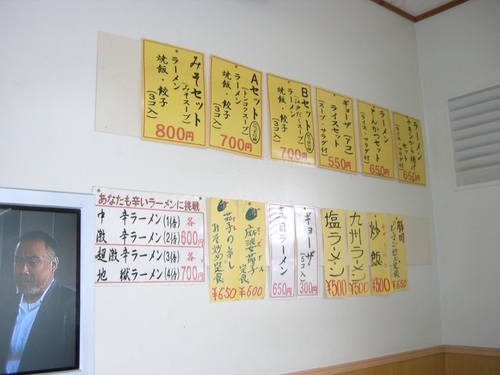 みそセット
(みそスープ)
ラーメン
焼飯・餃子
(3コ入)
800円
Aセット
(トンコツスープ)
ラーメン
焼飯・餃子
(3コ入)
700円
Bセット
ラーメン
焼飯・餃子
(3コ入)
700円
ギョーザ(7コ)
ライスセット
(スープ・サラダ付)
550円
セット
(ライス・サラダ付)
650円
ラーメン
650円
あなたも辛いラーメンに挑戦
中 辛ラーメン(1倍) 各
激 辛ラーメン(2倍) 600円
超激辛ラーメン(3倍) 各
地 獄ラーメン(4倍) 700円
みそ炒め定食
¥650
麻婆茄子
定食
¥600
五目ラーメン
650円
ギョーザ
(5コ入)
300円
塩ラーメン
¥500
九州ラーメン
¥500
炒飯
¥500
¥650